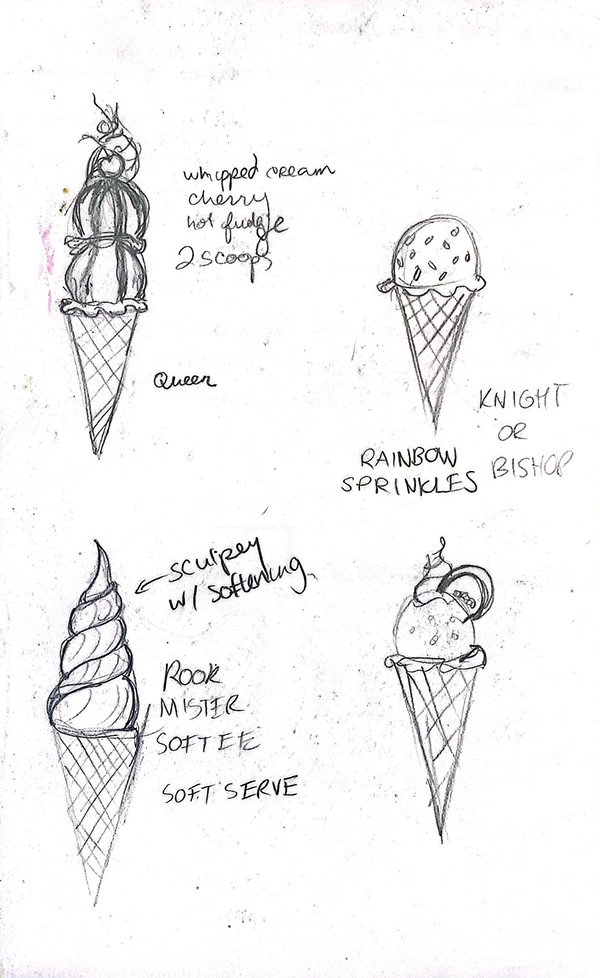 whipped cream
cherry
hot fudge
2 scoops
Queen
KNIGHT
OR
BISHOP
RAINBOW
SPRINKLES
sculpey
w/ softening
ROOK
MISTER
SOFTEE
SOFT SERVE